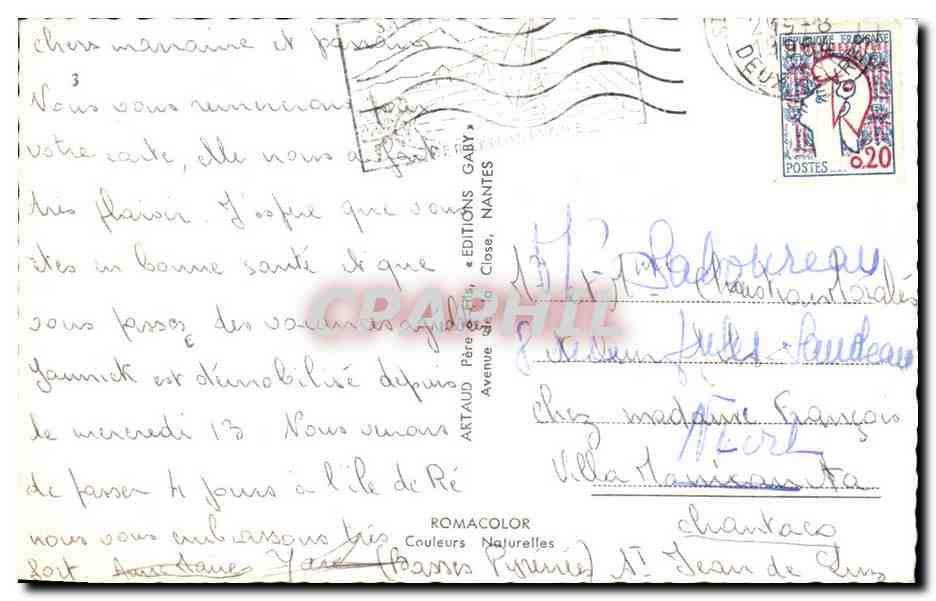 chers marraine et parrain
Nous vous remercions pour
votre carte, elle nous a fait
très plaisir. J'espère que vous
êtes en bonne santé et que
vous passez des vacances agréables
Yannick est démobilisé depuis
le mercredi 13 Nous venons
de passer 4 jours à l'île de Ré
nous vous embrassons très
fort
ARTAUD Père et Fils, « EDITIONS GABY »
Avenue de la Close, NANTES
ROMACOLOR
Couleurs Naturelles
REPUBLIQUE FRANÇAISE
POSTES 0,20
DEUX
CRAPHIL
Mr et Mme
8 rue Jules Sandeau
Niort
chez madame François
Villa
Chantaco
(Basses Pyrénées) St Jean de Luz